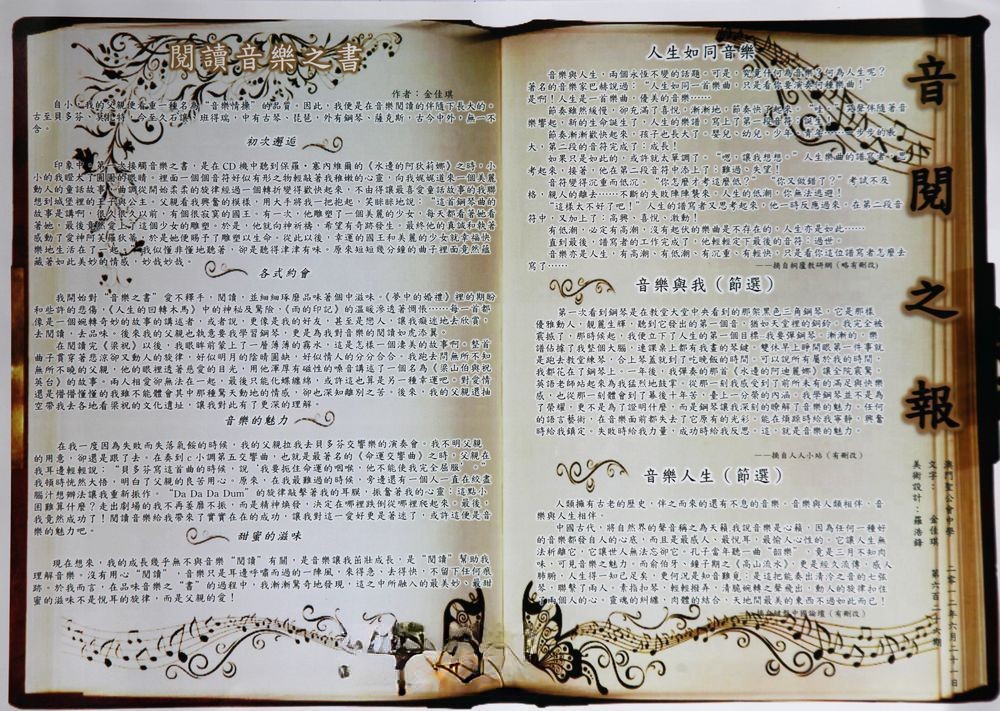 閱讀音樂之書
作者：金佳琪
自小，我的父親便看重一種名為“音樂情操”的品質，因此，我便是在音樂閱讀的伴隨下長大的。
古至貝多芬、莫扎特，今至久石讓、班得瑞，中有古琴、琵琶，外有鋼琴、薩克斯，古今中外，無一不
含。
初次邂逅
印象中，第一次接觸音樂之書，是在CD機中聽到保羅．塞內維爾的《水邊的阿狄莉娜》之時，小
小的我瞪大了圓圓的眼睛，裡面一個個音符好似有形之物輕敲著我稚嫩的心靈，向我娓娓道來一個美麗
動人的童話故事，曲調從開始柔柔的旋律經過一個轉折變得歡快起來，不由得讓最喜愛童話故事的我聯
想到城堡裡的王子與公主。父親看我興奮的模樣，用大手將我一把抱起，笑眯眯地說：“這首鋼琴曲的
故事是講啊，很久很久以前，有個很寂寞的國王。有一次，他雕塑了一個美麗的少女，每天都看著她看
著她，最後竟然愛上了這個少女的雕塑。於是，他就向神祈禱，希望有奇跡發生。最終他的真誠和執著
感動了愛神阿芙蘿狄蒂，於是她便賜予了雕塑以生命，從此以後，幸運的國王和美麗的少女就幸福快
樂地生活在了一起。”我似懂非懂地聽著，卻是聽得津津有味，原來短短幾分鐘的曲子裡面竟然蘊
藏著如此美妙的情感，妙哉妙哉。
各式約會
我開始對“音樂之書”愛不釋手，閱讀，並細細琢磨品味著個中滋味。《夢中的婚禮》裡的期盼
和些許的悲傷，《人生的回轉木馬》中的神秘及驚險，《雨的印記》的溫暖滲透著惆悵……每一首都
像是一個婉轉奇妙的故事的講述者，或者說，更像是我的好友，甚至是戀人，讓我癡迷地去欣賞，
去閱讀，去品味。後來我的父親也執意要我學習鋼琴，更是為我對音樂的閱讀如虎添翼。
在閱讀完《梁祝》以後，我眼眸前蒙上了一層薄薄的霧水，這是怎樣一個淒美的故事啊。整首
曲子貫穿著悲涼卻又動人的旋律，好似明月的陰晴圓缺，好似情人的分分合合。我跑去問無所不知
無所不曉的父親，他的眼裡透著慈愛的目光，用他渾厚有磁性的嗓音講述了一個名為《梁山伯與祝
英台》的故事。兩人相愛卻無法在一起，最後只能化蝶纏綿，或許這也算是另一種幸運吧。對愛情
還是懵懵懂懂的我雖不能體會其中那種驚天動地的情感，卻也深知離別之苦。後來，我的父親還抽
空帶我去各地看梁祝的文化遺址，讓我對此有了更深的理解。
音樂的魅力
在我一度因為失敗而失落氣餒的時候，我的父親拉我去貝多芬交響樂的演奏會。我不明父親
的用意，卻還是跟了去。在奏到c小調第五交響曲，也就是最著名的《命運交響曲》之時，父親在
我耳邊輕輕說：“貝多芬寫這首曲的時候，說‘我要扼住命運的咽喉，他不能使我完全屈服’。”
我頓時恍然大悟，明白了父親的良苦用心。原來，在我最難過的時候，旁邊還有一個人一直在絞盡
腦汁想辦法讓我重新振作。“Da Da Da Dum”的旋律敲擊著我的耳膜，振奮著我的心靈：這點小
困難算什麼？走出劇場的我不再萎靡不振，而是精神煥發，決定在哪裡跌倒從哪裡爬起來。最後，
我竟然成功了！閱讀音樂給我帶來了實實在在的成功，讓我對這一愛好更是著迷了，或許這便是音
樂的魅力吧。
甜蜜的滋味
現在想來，我的成長幾乎無不與音樂“閱讀”有關，是音樂讓我茁壯成長，是“閱讀”幫助我
理解音樂。沒有用心“閱讀”，音樂只是耳邊呼嘯而過的一陣風，來得急，去得快，不留下任何痕
跡。於我而言，在品味音樂之“書”的過程中，我漸漸驚奇地發現，這之中所融入的最美妙、最甜
蜜的滋味不是悅耳的旋律，而是父親的愛！
人生如同音樂
音樂與人生，兩個永恆不變的話題。可是，究竟什何為音樂？何為人生呢？
著名的音樂家巴赫說過：“人生如同一首樂曲，只是看你要演奏何種樂曲！”
是啊！人生是一首樂曲，優美的音樂……
節奏雖然緩慢，卻充滿了喜悅。漸漸地，節奏快了起來，“哇……”哭聲伴隨著音
樂響起，新的生命誕生了，人生的樂譜，寫上了第一段音符：誕生！
節奏漸漸歡快起來，孩子也長大了。嬰兒，幼兒，少年，青年……一步步的長
大，第二段的音符完成了：成長！
如果只是如此的，或許就太單調了。“嗯，讓我想想。”人生樂曲的譜寫者，思
考起來，接著，他在第二段音符中添上了：難過，失望！
音符變得沉重而低沉，“你怎麼才考這麼低？”“你又做錯了？”考試不及
格，親人的離去……不斷的失敗陣陣襲來，人生的低潮，你無法逃避！
“這樣太不好了吧！”人生的譜寫者又思考起來，他一時反應過來，在第二段音
符中，又加上了：高興，喜悅，激動！
有低潮，必定有高潮，沒有起伏的樂曲是不存在的，人生亦是如此……
直到最後，譜寫者的工作完成了，他輕輕定下最後的音符：過世。
音樂亦是人生，有高潮、有低潮、有沉重、有輕快，只是看你這位譜寫者怎麼去
寫了……
——摘自桐廬教研網（略有刪改）
音樂與我（節選）
第一次看到鋼琴是在教堂大堂中央看到的那架黑色三角鋼琴，它是那樣
優雅動人，靚麗生輝，聽到它發出的第一個音，猶如天堂裡的鋼鈴。我完全被
震撼了，那時候起，我便立下了人生的第一個目標–我要彈鋼琴。漸漸的，樂
譜佔據了我整個大腦，連課桌上都有我畫的琴鍵，雙休早上睜開眼第一件事就
是跑去教堂練琴，合上琴蓋就到了吃晚飯的時間，可以說所有屬於我的時間，
我都花在了鋼琴上。一年後，我彈奏的那首《水邊的阿迪麗娜》讓全院震驚，
英語老師站起來為我猛烈地鼓掌，從那一刻我感受到了前所未有的滿足與快樂
感，也從那一刻體會到了幕後十年苦，臺上一分榮的內涵。我學鋼琴並不是為
了榮耀，更不是為了證明什麼，而是鋼琴讓我深刻的瞭解了音樂的魅力。任何
的語言藝術，在音樂面前都失去了它原有的光彩，能在煩躁時給我寧靜，興奮
時給我鎮定，失敗時給我力量，成功時給我反思，這，就是音樂的魅力。
——摘自人人小站（有刪改）
音樂人生（節選）
人類擁有古老的歷史，伴之而來的還有不息的音樂，音樂與人類相伴，音
樂與人生相伴。
中國古代，將自然界的聲音稱之為天籟，我說音樂是心籟，因為任何一種好
的音樂都發自人的心底，而且是最感人、最悅耳、最愉人心性的。它讓人生無
法祈離它，它讓世人無法忘卻它。孔子當年聽一曲“韶樂”，竟是三月不知肉
味，可見音樂之魅力。而俞伯牙、鐘子期之《高山流水》，更是經久流傳，感人
肺腑，人生得一知己足矣，更何況是知音難覓；是這把能奏出清冷之音的七弦
琴，聯繫了兩人，素指扣琴，輕輕撥弄，清脆婉轉之聲飛出，動人的旋律扣住
了兩個人的心，靈魂的糾纏，肉體的結合，天地間最美的東西不過如此而已！
中國論壇（有刪改）
音閱之報
澳門聖公會中學
文字：金佳琪
美術設計：羅浩鋒
二零一二年六月二十一日
第六百二十六期